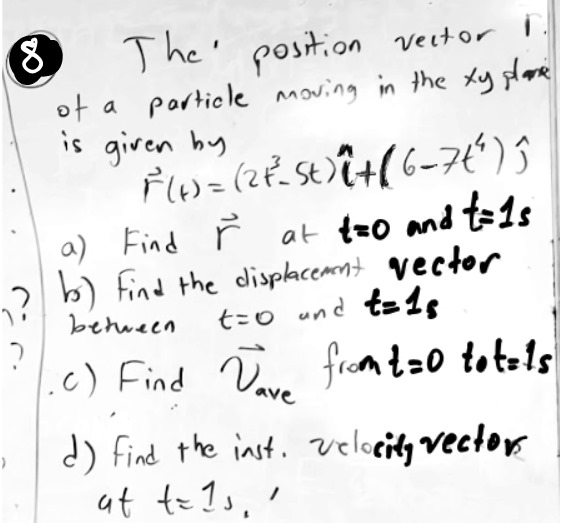 8 The position vector r
of a particle moving in the xy plane
is given by
r⃗(t) = (2t³-5t)î+(6-7t⁴)ĵ
a) Find r⃗ at t=0 and t=1s
b) Find the displacement vector
between t=0 and t=1s
c) Find V⃗ave from t=0 to t=1s
d) find the inst. velocity vectors
at t=1s.